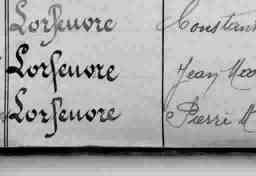 Lorfeuvre Constant
Lorfeuvre Jean
Lorfeuvre Pierre